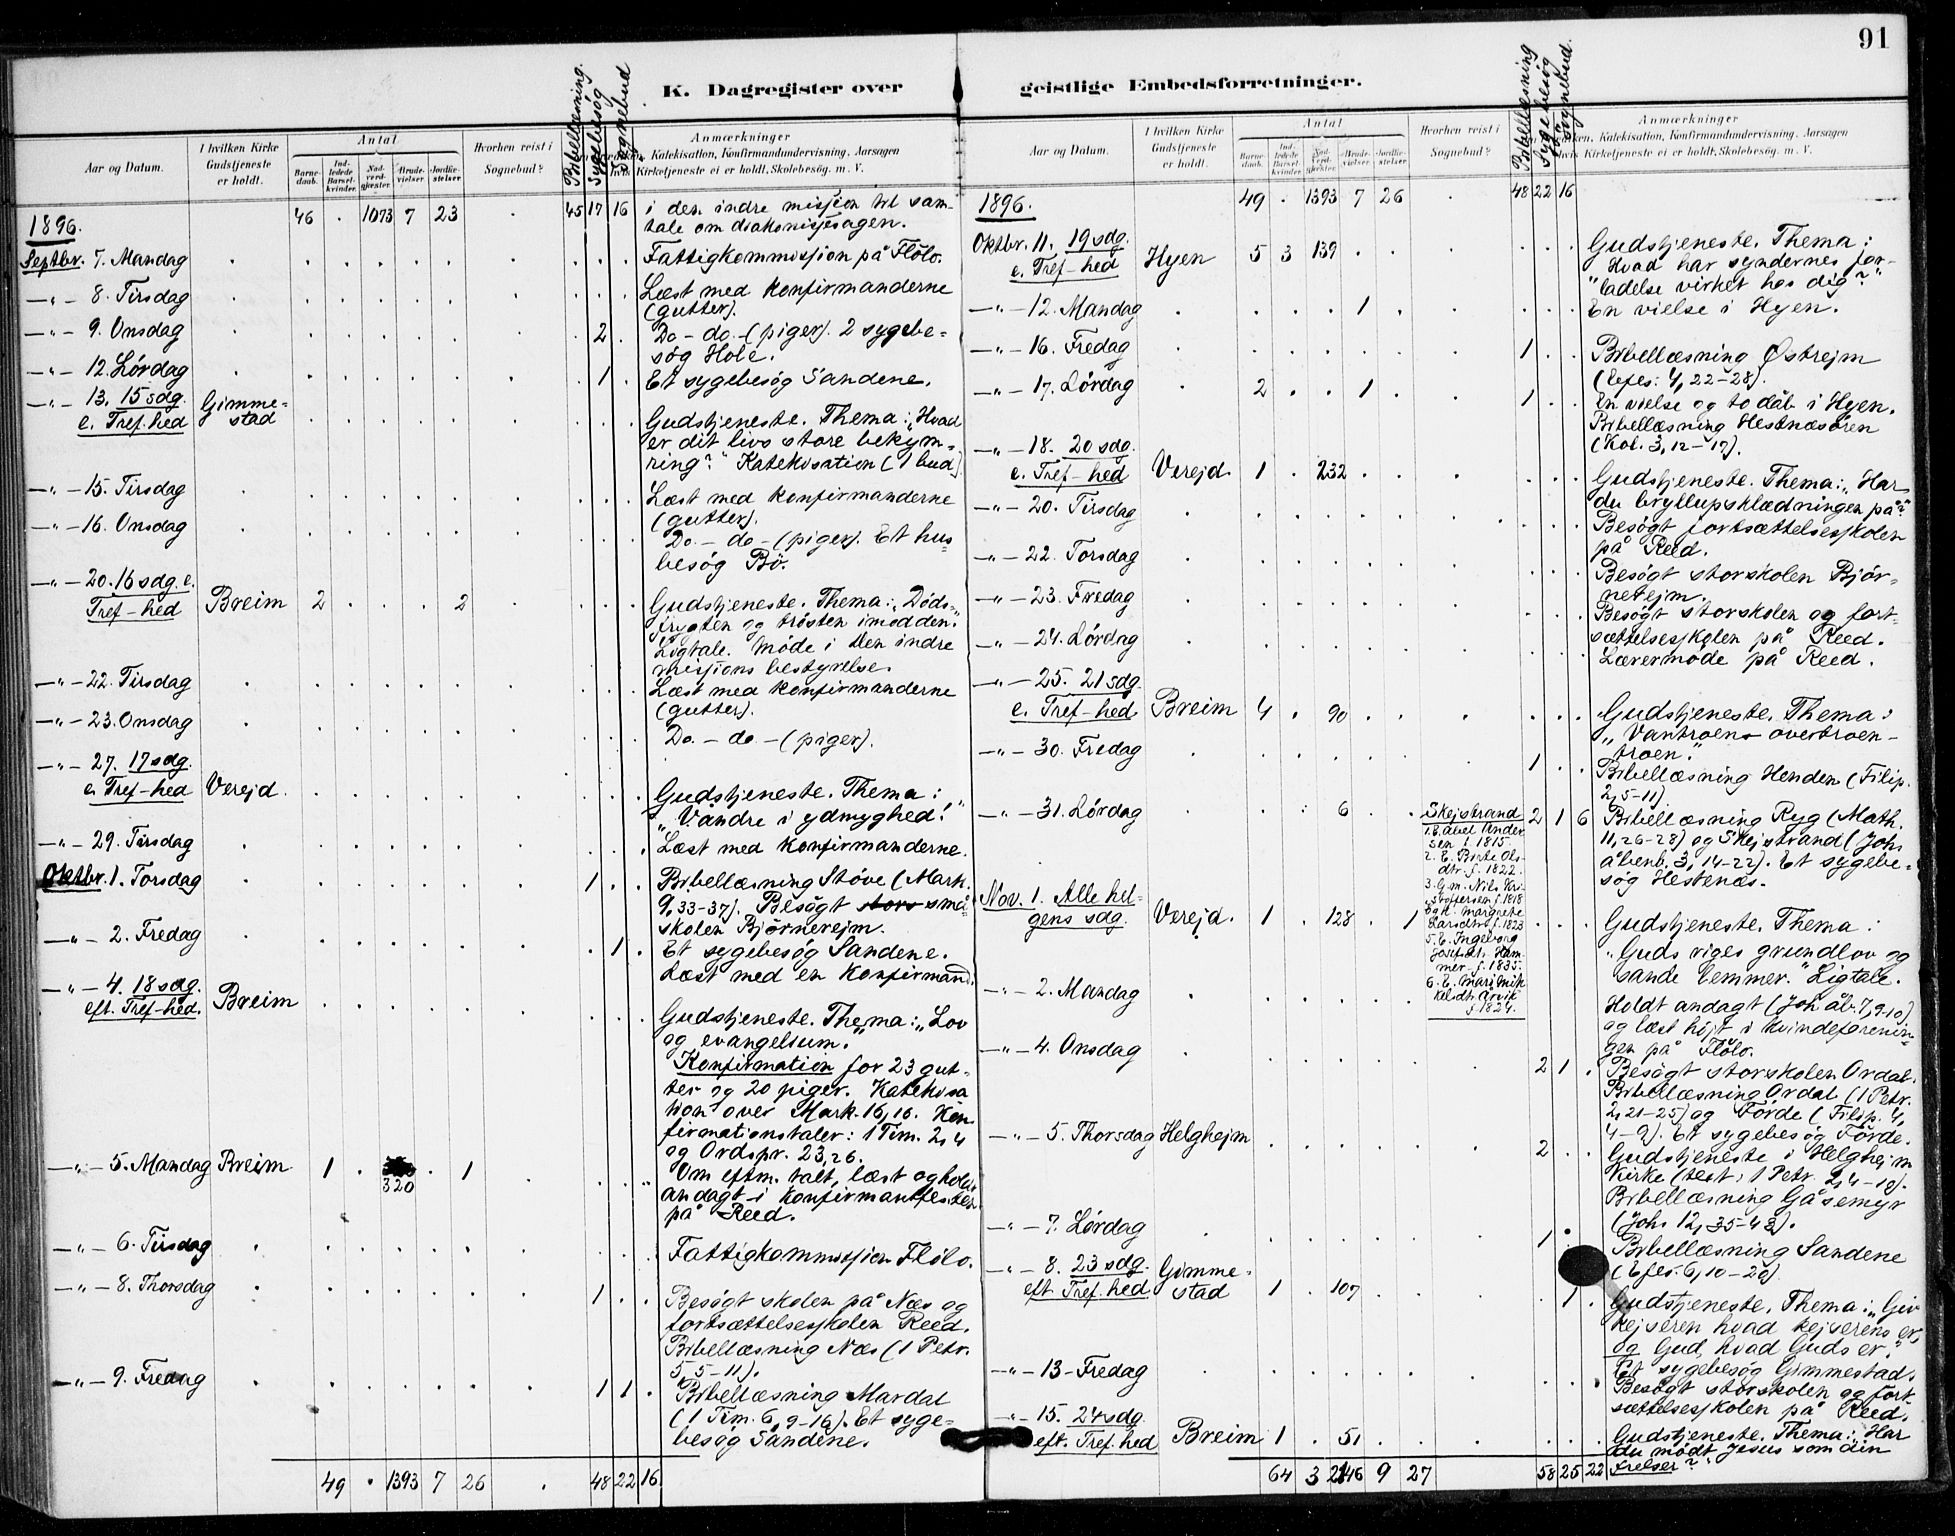 91
K. Dagregister over
geistlige Embedsforretninger.
Aar og Datum.
I hvilken Kirke
Gudstjeneste
er holdt.
Antal
Barne-
daab.
Ind-
ledede
Barsel-
kvinder.
Nad-
verd-
gjæster.
Brude-
vielser
Jordfæ-
stelser
Hvorhen reist i
Sognebud?
Bibellæsning.
Sygebesøg
Sognebud
Anmærkninger
Katekisation, Konfirmandundervisning. Aarsagen
hvis Kirketjeneste ei er holdt. Skolebesøg. m. V.
1896. 46 . 1073 7 23 . 45 17 16 i den indre misjion til sam-
tale om diakonisjesagen.
Septbr. 7. Mandag Fattigkommisjion på Flölo.
—"— 8. Tirsdag Læst med konfirmanderne
(gutter).
—"— 9. Onsdag 2 Do - do - (piger). 2 sygebe-
søg Hole.
—"— 12. Lørdag 1 Et sygebesøg Sandene.
—"— 13. 15 sdg. Gimme-
e. Tref.hed stad Gudstjeneste. Thema: „Hvad
er dit livs store bekym-
ring?" Katekisation (1 bud)
—"— 15. Tirsdag Læst med konfirmanderne
(gutter).
—"— 16. Onsdag Do. - do - (piger). Et hus-
besøg Bö.
—"— 20. 16 sdg. e.
Tref-hed Breim 2 2 Gudstjeneste. Thema: „Døds-
frygten og trösten imod den."
Ligtale. Møde i den indre
misjions bestyrelse.
—"— 22. Tirsdag Læst med konfirmanderne
(gutter).
—"— 23. Onsdag Do. - do - (piger).
—"— 27. 17 sdg.
e. Tref-hed Verejd. Gudstjeneste. Thema:
„Vandre i ydmyghed!"
—"— 29. Tirsdag Læst med konfirmanderne.
Oktbr. 1. Torsdag 1 Bibellæsning Støve (Mark.
9,33-37). Besøgt stors små-
skolen Bjørnerejm.
—"— 2. Fredag 1 Et sygebesøg Sandene.
Læst med en konfirmand.
—"— 4. 18 sdg.
eft. Tref-hed. Breim Gudstjeneste. Thema: „Lov
og evangelium."
Konfirmation for 23 gut-
ter og 20 piger. Katekisa
tion over Mark. 16,16. Kon
firmationstaler: 1 Tim. 2,4
og Ordspr. 23,26.
—"— 5. Mandag Breim 1 . 320 . 1 Om eftm. talt, læst og holdt
andagt i konfirmantfesten
på Reed.
—"— 6. Tirsdag Fattigkommisjion Flölo.
—"— 8. Thorsdag 1 Besøgt skolen på Næs og
fortsættelsesjkolen Reed.
Bibellæsning Næs (1 Petr.
5,5-11).
—"— 9. Fredag 1 1 Bibellæsning Mardal
(1 Tim. 6,9-16). Et syge-
besøg Sandene.
49 . 1393 7 26 . 48 22 16
Aar og Datum.
I hvilken Kirke
Gudstjeneste
er holdt.
Antal
Barne-
daab.
Ind-
ledede
Barsel-
kvinder.
Nad-
verd-
gjæster.
Brude-
vielser
Jordfæ-
stelser
Hvorhen reist i
Sognebud?
Bibellæsning
Sygebesøg
Sognebud.
Anmærkninger
Katekisation, Konfirmandundervisning. Aarsagen
hvis Kirketjeneste ei er holdt. Skolebesøg. m. V.
1896. 49 . 1393 7 26 . 48 22 16
Oktbr. 11. 19 sdg.
e. Tref-hed Hyen 5 3 139 Gudstjeneste. Thema:
Hvad har syndernes for-
"ladelse virket hos dig?"
—"— 12. Mandag 1 En vielse i Hyen.
—"— 16. Fredag 1 Bibellæsning Østrejm
(Efes: 4,22-28).
—"— 17. Lørdag 2 . . 1 1 En vielse og to dåb i Hyen.
Bibellæsning Hestnæsören
(Kol. 3,12-17).
—"— 18. 20 sdg.
e. Tref-hed Verejd. 1 . 232 Gudstjeneste. Thema: „Har
du bryllupsklædningen på?"
—"— 20. Tirsdag Besøgt fortsættelsesjkolen
på Reed.
—"— 22. Torsdag Besøgt storskolen Bjør-
nerejm.
—"— 23. Fredag Besøgt storskolen og fort-
sættelsesjkolen på Reed.
—"— 24. Lørdag Lærermøde på Reed.
—"— 25. 21 sdg.
e. Tref-hed Breim 4 . 90 Gudstjeneste. Thema:
„Vantroens overtroen-
troen."
—"— 30. Fredag 1 Bibellæsning Henden (Filip.
2,5-11)
—"— 31. Lørdag 6 Skejstrand 2 1 6 Bibellæsning Ryg (Math.
11,26-28) og Skejstrand (Johs
åbenb. 3,14-22). Et sygebe-
søg Hestenæs.
1. E. Abel Ander
sen f. 1815.
2. E. Birte Ols-
dtr f. 1822.
3. G.m. Nils Kri-
stoffersen f. 1818
Og k. Margrete
Larsdtr f. 1823
5. E. Ingeborg
Josefsdt. Ham-
mer f. 1835.
6. E. Mari Mik
kelsdt. Arvik
f. 1824.
Nov. 1. Alle hel-
gens sdg. Verejd. 1 . 128 . 1 Gudstjeneste. Thema:
„Guds riges grundlov og
sande lemmer." Ligtale.
—"— 2. Mandag Holdt andagt (Joh. åb. 7,9-10)
og læst højt i kvindeforenin-
gen på Flölo.
—"— 4. Onsdag 2 1 Besøgt storskolen Ordal.
Bibellæsning Ordal (1 Petr.
2,21-25) og Förde (Filip. 4,
4-9). Et sygebesøg Förde.
—"— 5. Thorsdag Helghejm 2 Gudstjeneste i Helghejm
kirke (text: 1 Petr. 2,4-10).
Bibellæsning Gåsemyr
(Johs 12,35-43).
—"— 7. Lørdag 1 Bibellæsning Sandene
(Efes. 6,10-20)
—"— 8. 23 sdg. Gimme-
eft Tref.hed stad 1 . 107 1 Gudstjeneste. Thema: „Giv
kejseren hvad kejserens er,
og Gud, hvad Guds er."
Et sygebesøg Gimmestad.
—"— 13. Fredag Besøgt storskolen og fort
sættelsesjkolen på Reed.
—"— 15. 24 sdg.
eft. Tref.hed Breim 1 . 51 Gudstjeneste. Thema: „Har
du mødt Jesus som din
frelser?"
64 3 2146 9 27 58 25 22